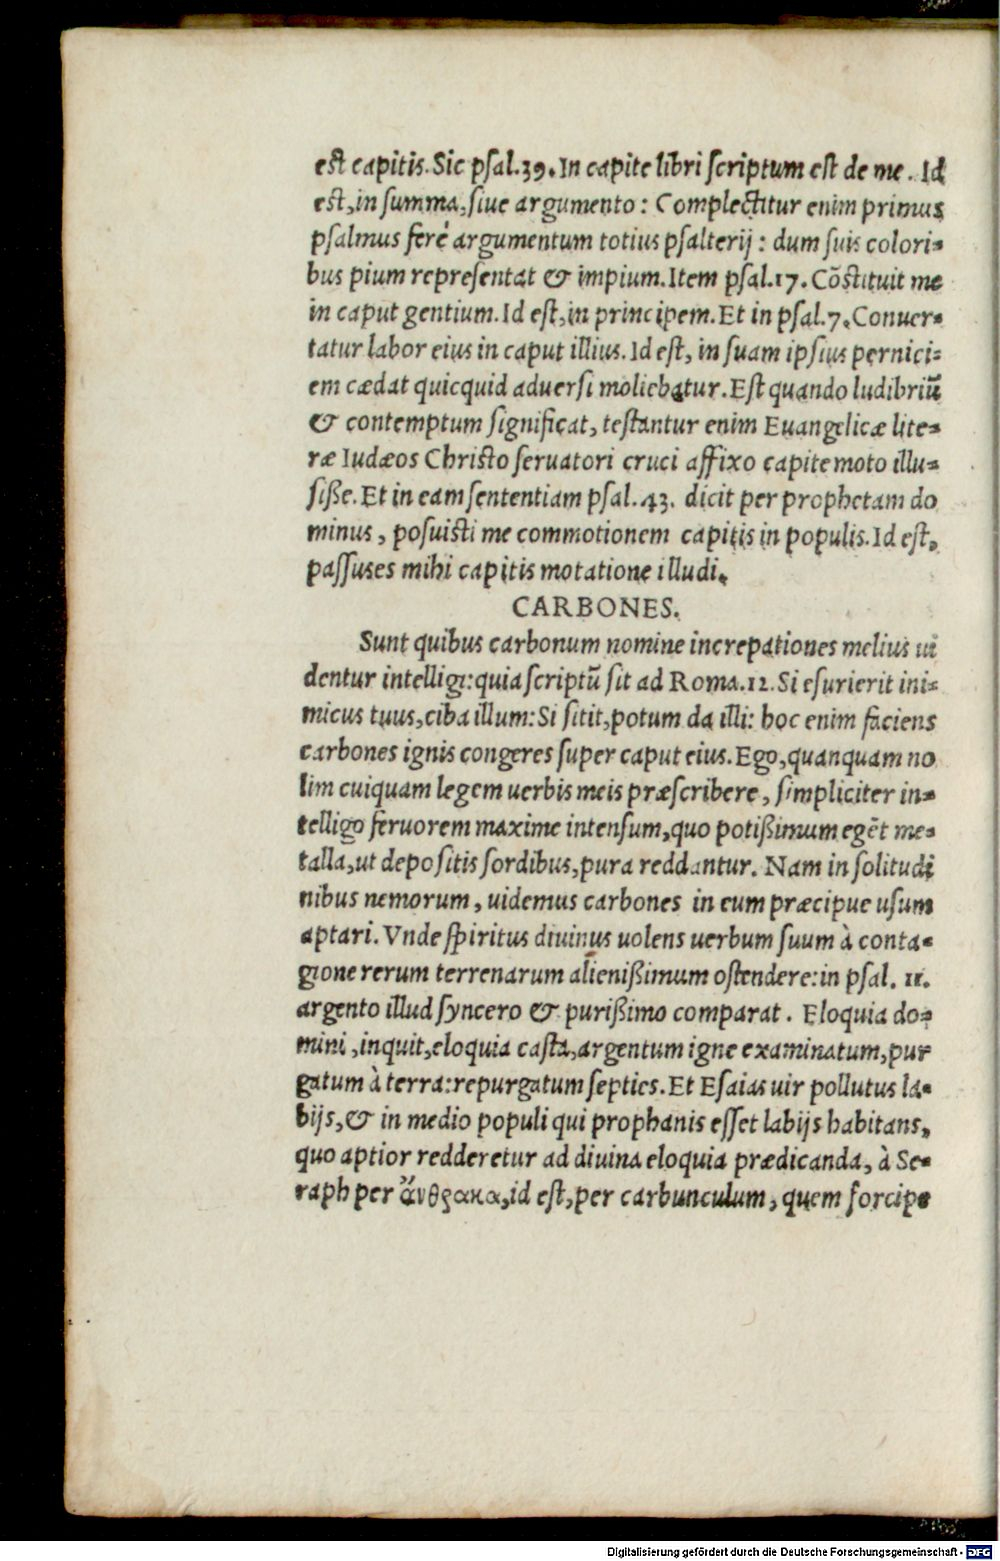 est capitis. Sic psal.39. In capite libri scriptum est de me. Id
est, in summa, siue argumento: Complectitur enim primus
psalmus ferè argumentum totius psalterij: dum suis colori-
bus pium representat & impium. Item psal.17. Cõstituit me
in caput gentium. Id est, in principem. Et in psal.7. Conuer-
tatur labor eius in caput illius. Id est, in suam ipsius pernici-
em cædat quicquid aduersi moliebatur. Est quando ludibriũ
& contemptum significat, testantur enim Euangelicæ lite-
ræ Iudæos Christo seruatori cruci affixo capite moto illu-
siße. Et in eam sententiam psal.43. dicit per prophetam do
minus, posuisti me commotionem capitis in populis. Id est,
passus es mihi capitis motatione illudi.
CARBONES.
Sunt quibus carbonum nomine increpationes melius ui
dentur intelligi: quia scriptũ sit ad Roma.12. Si esurierit ini-
micus tuus, ciba illum: Si sitit, potum da illi: hoc enim faciens
carbones ignis congeres super caput eius. Ego, quanquam no
lim cuiquam legem uerbis meis præscribere, simpliciter in-
telligo feruorem maxime intensum, quo potißimum egẽt me-
talla, ut depositis sordibus, pura reddantur. Nam in solitudi
nibus nemorum, uidemus carbones in eum præcipue usum
aptari. Vnde spiritus diuinus uolens uerbum suum à conta-
gione rerum terrenarum alienißimum ostendere: in psal. 11.
argento illud syncero & purißimo comparat. Eloquia do-
mini, inquit, eloquia casta, argentum igne examinatum, pur
gatum à terra: repurgatum septies. Et Esaias uir pollutus la-
bijs, & in medio populi qui prophanis esset labijs habitans,
quo aptior redderetur ad diuina eloquia prædicanda, à Se-
raph per ἄνθρακα, id est, per carbunculum, quem forcipe
Digitalisierung gefördert durch die Deutsche Forschungsgemeinschaft - DFG